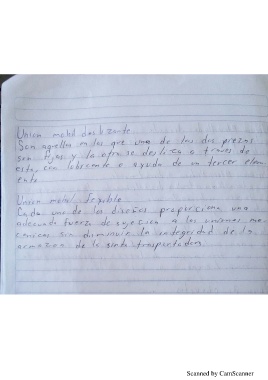 Union mobil deslizante
Son aquellas en las que una de las dos piezas
son fijas y la otra se desliza a traves de
esta, con lubricante o ayuda de un tercer elem
ento
Union mobil flexible
Cada uno de los diseños proporciona una
adecuada fuerza de sujecion a las uniones me
canicas sin disminuir la integridad de la
armazon de la sinta trasportadora
Scanned by CamScanner